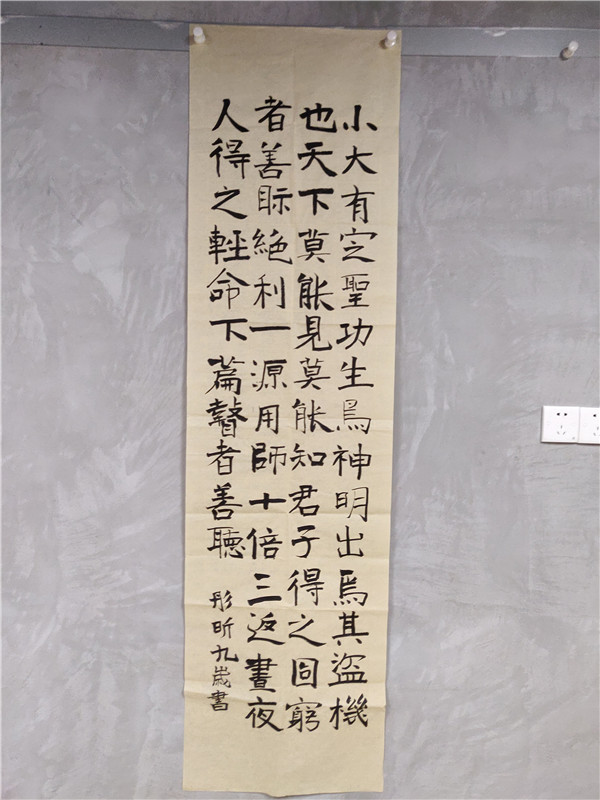 小大有定聖功生焉神明出焉其盜機
也天下莫能見莫能知君子得之固窮
者善眎絕利一源用師十倍三返晝夜
人得之輕命下篇瞽者善聽
彤昕九歲書